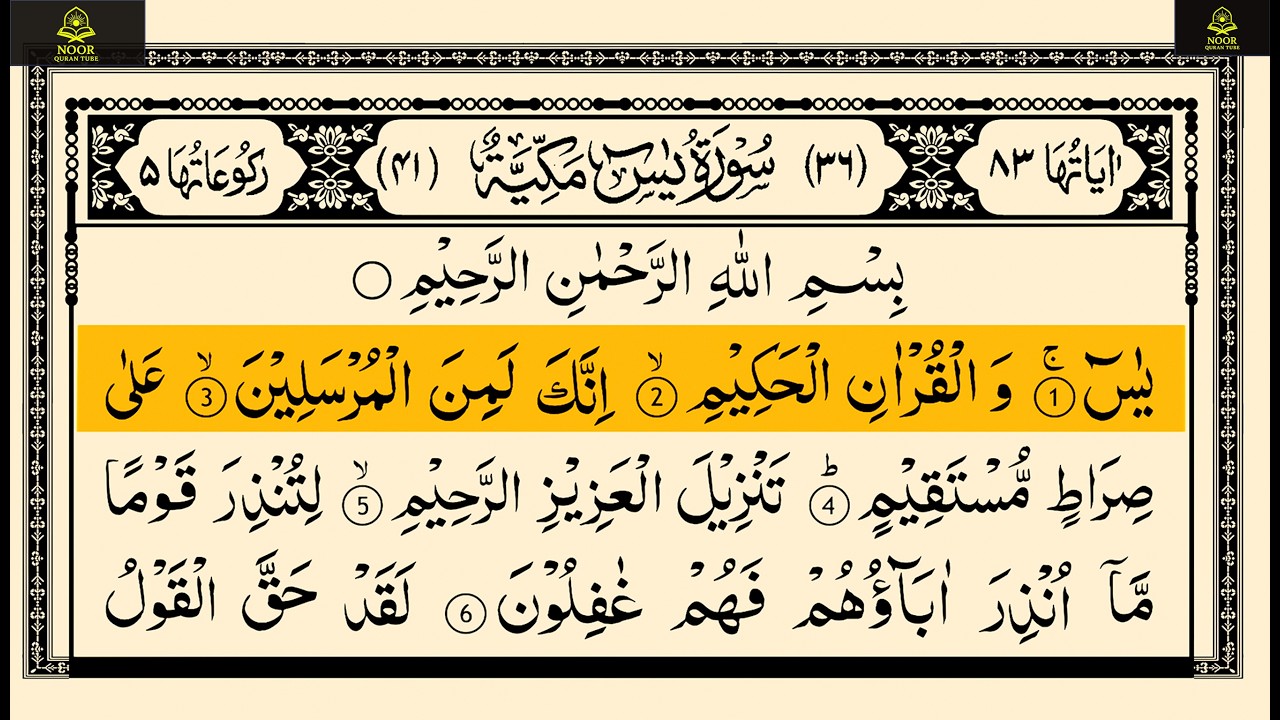 NOOR
QURAN TUBE
NOOR
QURAN TUBE
اٰيَاتُهَا ٨٣ (٣٦) سُوْرَةُ يٰسٓ مَكِّيَّةٌ (٤١) رُكُوْعَاتُهَا ٥
بِسْمِ اللّٰهِ الرَّحْمٰنِ الرَّحِيْمِ ○
يٰسٓ ۚ 1 وَ الْقُرْاٰنِ الْحَكِيْمِ ۙ 2 اِنَّكَ لَمِنَ الْمُرْسَلِيْنَ ۙ 3 عَلٰى
صِرَاطٍ مُّسْتَقِيْمٍ ؕ 4 تَنْزِيْلَ الْعَزِيْزِ الرَّحِيْمِ ۙ 5 لِتُنْذِرَ قَوْمًا
مَّاۤ اُنْذِرَ اٰبَآؤُهُمْ فَهُمْ غٰفِلُوْنَ 6 لَقَدْ حَقَّ الْقَوْلُ